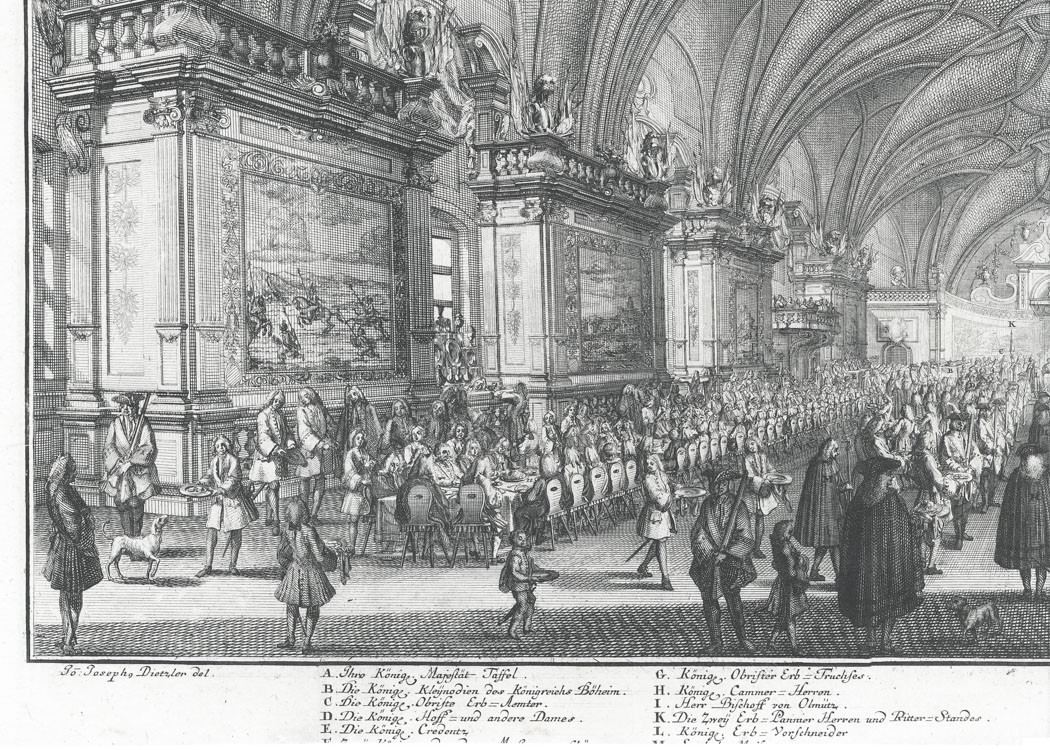 K
Jo: Joseph, Dietzler del.
A. Ihro König. Majestät Taffel.
B. Die Könige. Kleynodien des Königreichs Böheim.
C. Die Könige. Obriste Erb=Aemter.
D. Die Könige. Hoff= und andere Dames.
E. Die König. Credentz
G. Könige. Obrister Erb=Truchses.
H. Könige. Cammer=Herren.
I. Herr Bischoff von Olmütz.
K. Die Zweÿ Erb=Pannier Herren und Ritter=Standes.
L. Könige. Erb=Vorschneider